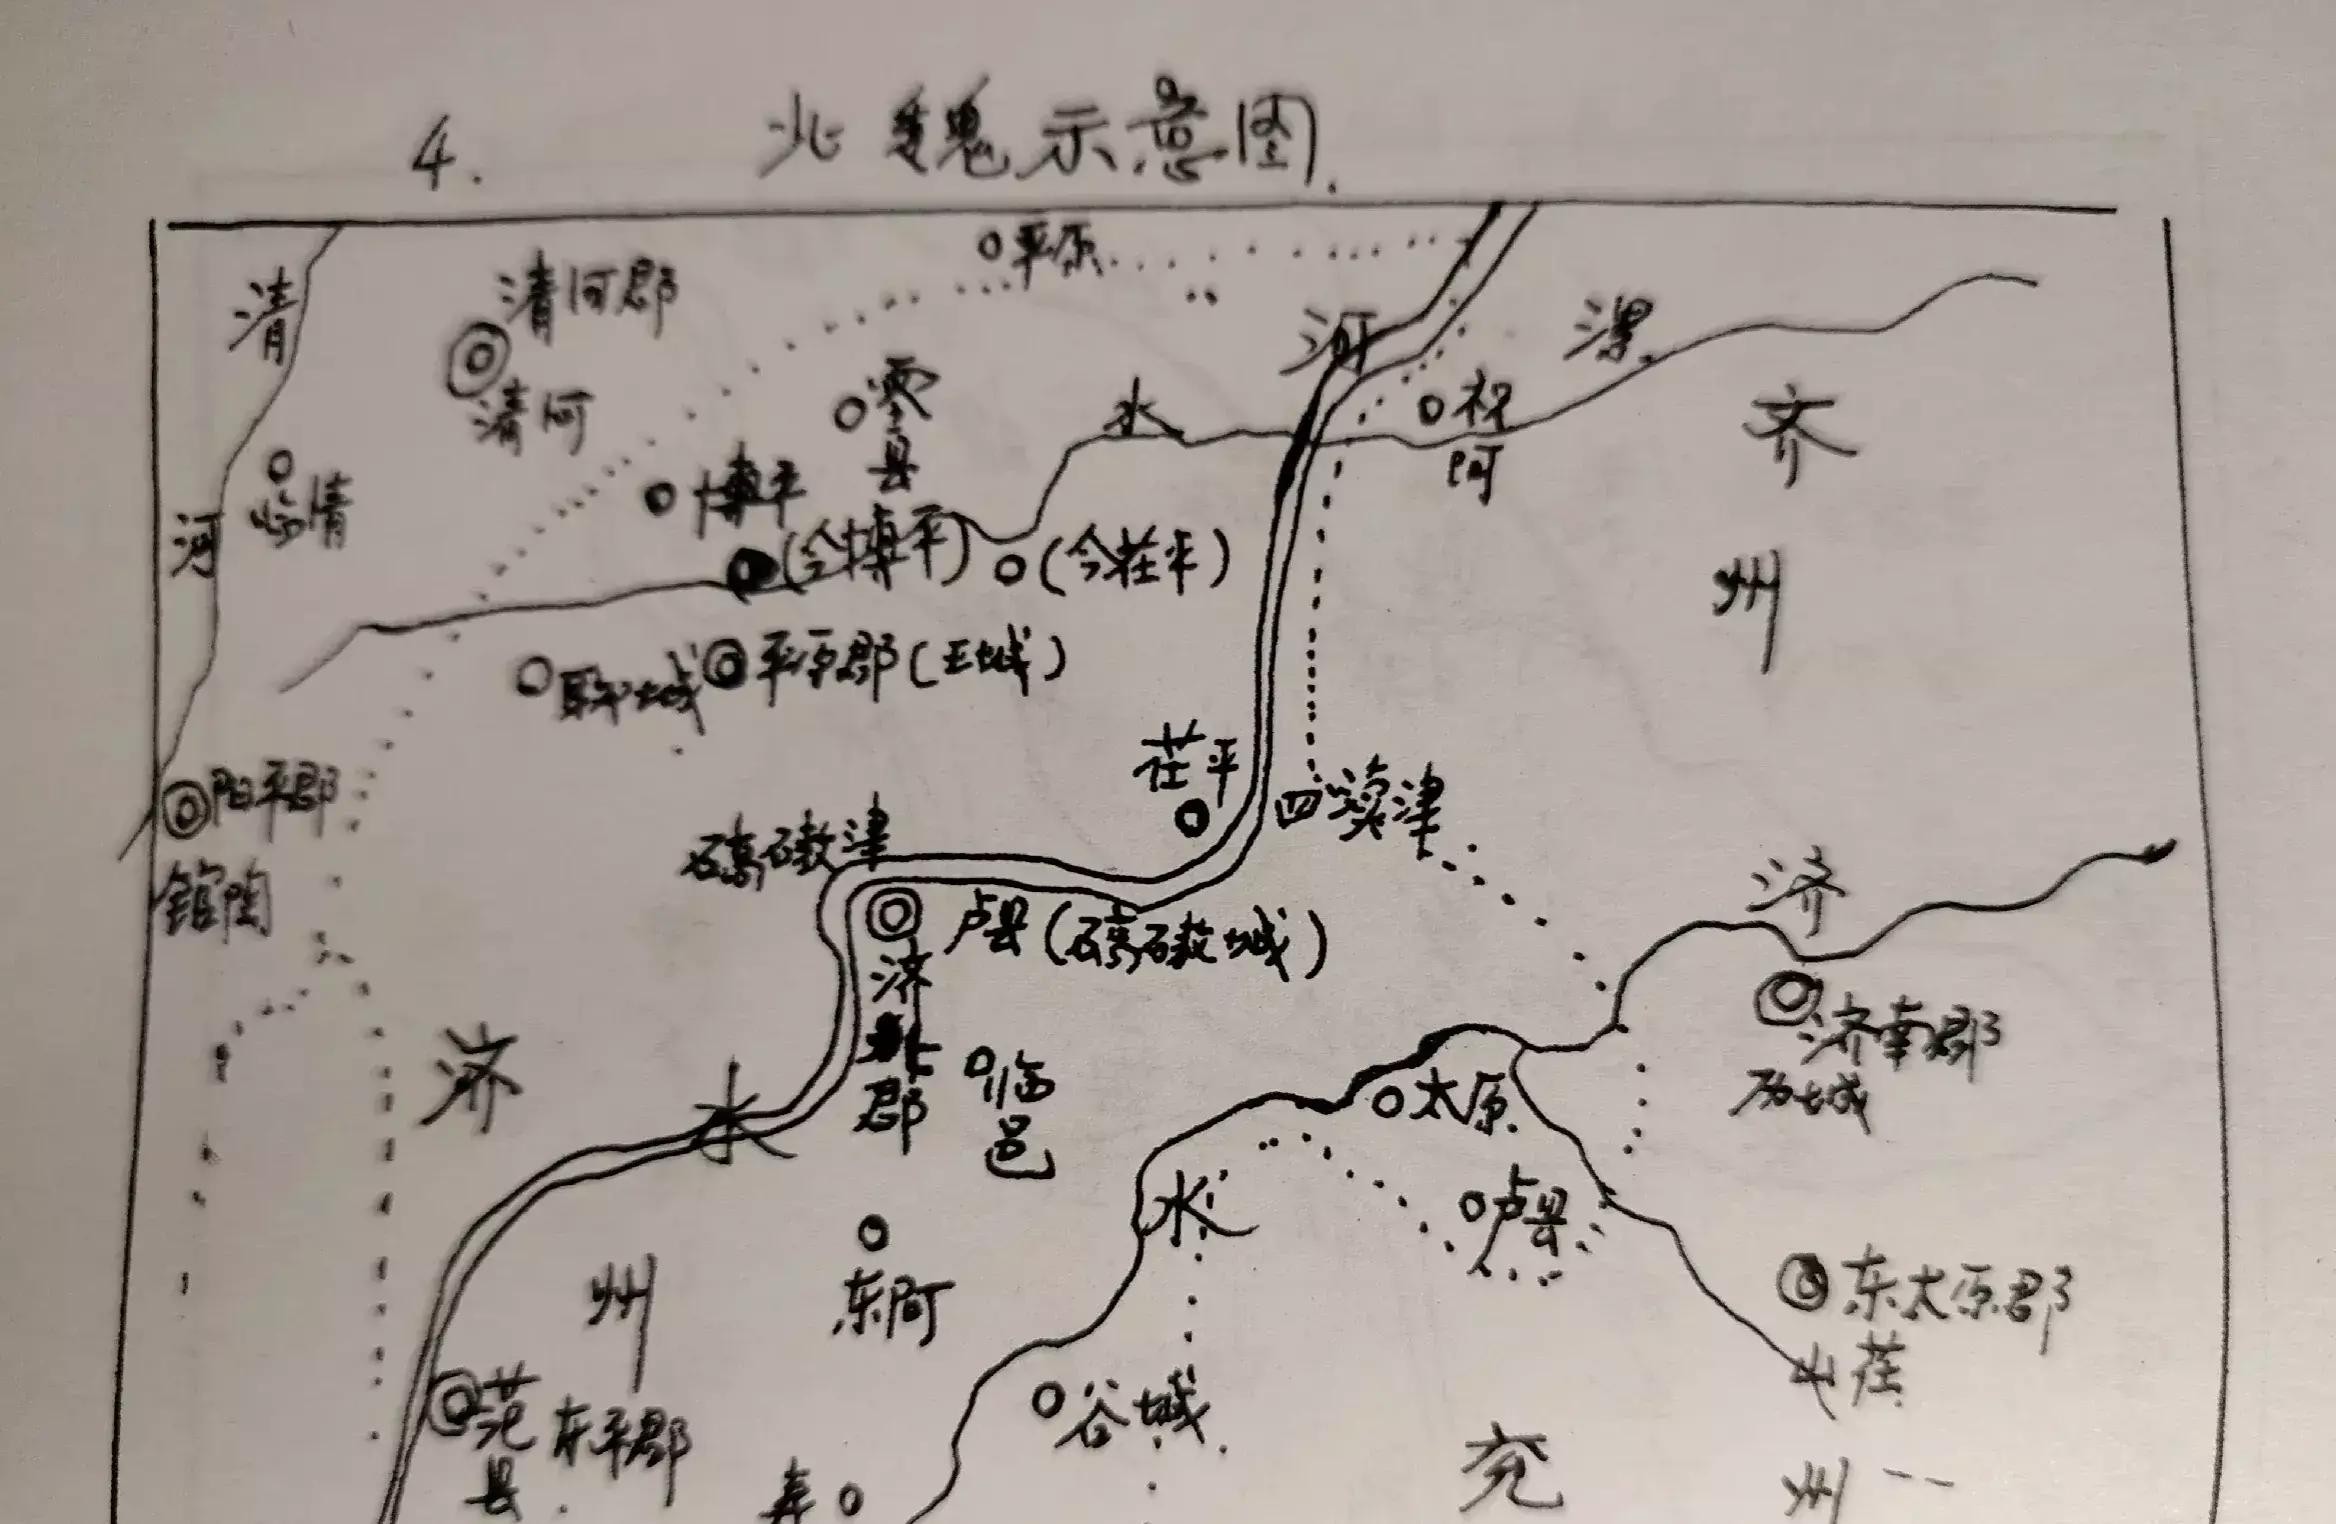 4. 北魏示意图.
平原
清河郡
清
河
漯
水
河
清河
灵县
祝阿
齐
州
临清
博平
(今博平)
(今茌平)
聊城
平原郡(王城)
茌平
四渎津
阳平郡
馆陶
碻磝津
卢县(碻磝城)
济北郡
济
水
济南郡
历城
济
州
临邑
太原
卢县
水
东阿
东太原郡
山茌
范县
东平郡
谷城
寿
兖
州